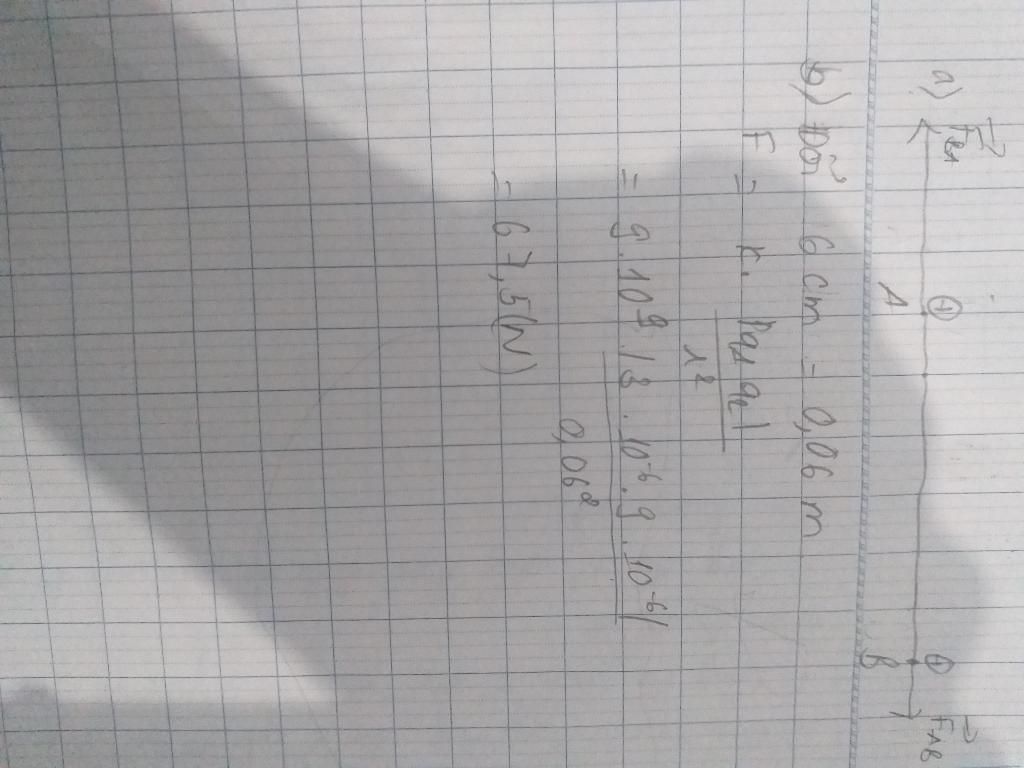 a) F⃗BA ⊕ ⊕ F⃗AB
A B
b) Đổi 6 cm = 0,06 m
F = k. |q1 q2| / r²
= 9.10⁹ |3.10⁻⁶.9.10⁻⁶| / 0,06²
= 67,5 (N)